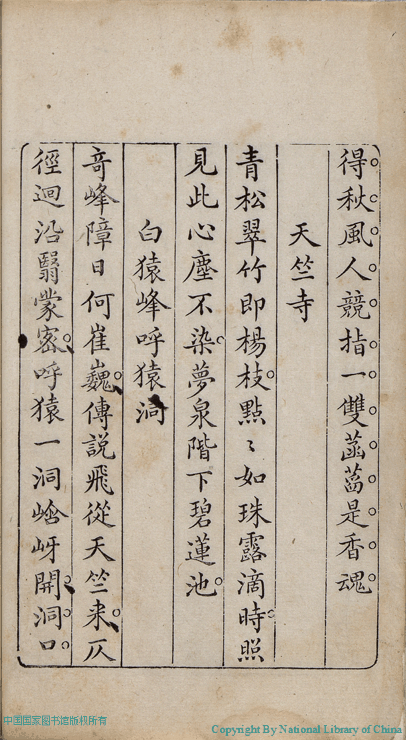 得秋風人競指一雙菡萏是香魂
天竺寺
青松翠竹即楊枝點〻如珠露滴時照
見此心塵不染夢泉階下碧蓮池
白猿峰呼猿洞
奇峰障日何崔巍傳說飛從天竺来仄
徑迴沿翳蒙密呼猿一洞崄岈開洞口
中国国家图书馆版权所有
Copyright By National Library of China